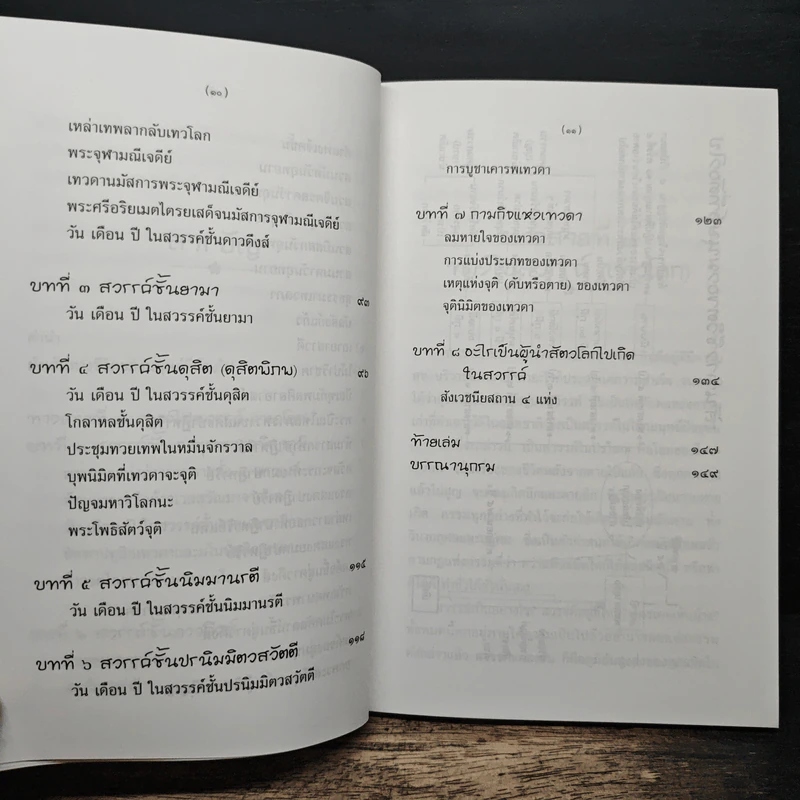 (๑๐)
เหล่าเทพลากลับเทวโลก
พระจุฬามณีเจดีย์
เทวดานมัสการพระจุฬามณีเจดีย์
พระศรีอริยเมตไตรยเสด็จนมัสการจุฬามณีเจดีย์
วัน เดือน ปี ในสวรรค์ชั้นดาวดึงส์
บทที่ ๓ สวรรค์ชั้นยามา ๙๓
วัน เดือน ปี ในสวรรค์ชั้นยามา
บทที่ ๔ สวรรค์ชั้นดุสิต (ดุสิตพิภพ) ๙๖
วัน เดือน ปี ในสวรรค์ชั้นดุสิต
โกลาหลชั้นดุสิต
ประชุมทวยเทพในหมื่นจักรวาล
บุพนิมิตที่เทวดาจะจุติ
ปัญจมหาวิโลกนะ
พระโพธิสัตว์จุติ
บทที่ ๕ สวรรค์ชั้นนิมมานรตี ๑๑๕
วัน เดือน ปี ในสวรรค์ชั้นนิมมานรตี
บทที่ ๖ สวรรค์ชั้นปรนิมมิตวสวัตตี ๑๑๘
วัน เดือน ปี ในสวรรค์ชั้นปรนิมมิตวสวัตตี
(๑๑)
การบูชาเคารพเทวดา
บทที่ ๗ กามกิจแห่งเทวดา ๑๒๓
ลมหายใจของเทวดา
การแบ่งประเภทของเทวดา
เหตุแห่งจุติ (ดับหรือตาย) ของเทวดา
จุตินิมิตของเทวดา
บทที่ ๘ อะไรเป็นผู้นำสัตวโลกไปเกิด
ในสวรรค์ ๑๓๔
สังเวชนียสถาน ๔ แห่ง
ท้ายเล่ม ๑๔๗
บรรณานุกรม ๑๔๙